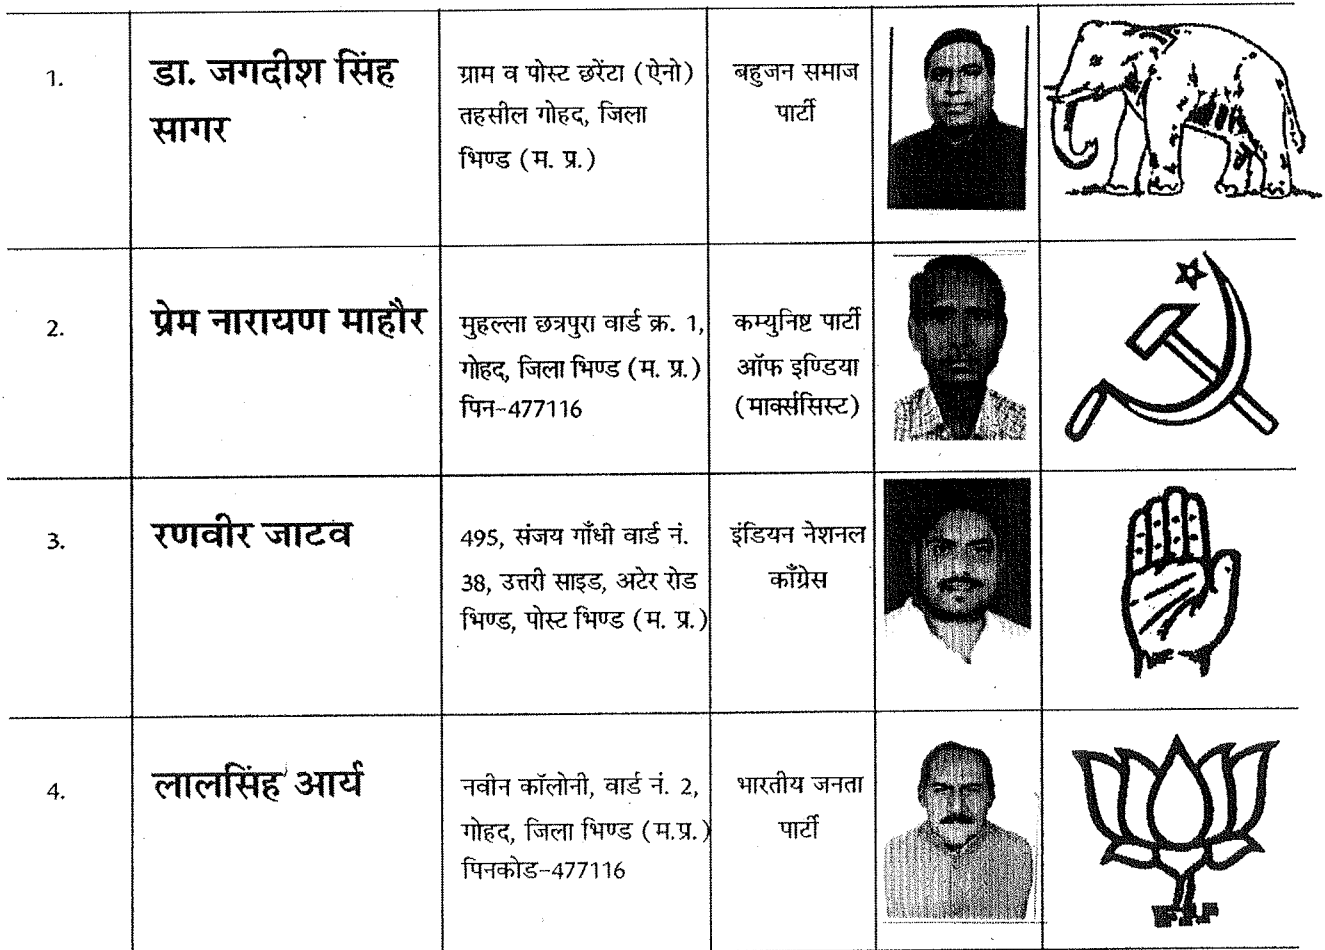 1.
डा. जगदीश सिंह
सागर
ग्राम व पोस्ट छरेंटा (ऐनो)
तहसील गोहद, जिला
भिण्ड (म. प्र.)
बहुजन समाज
पार्टी
2.
प्रेम नारायण माहौर
मुहल्ला छत्रपुरा वार्ड क्र. 1,
गोहद, जिला भिण्ड (म. प्र.)
पिन-477116
कम्युनिष्ट पार्टी
ऑफ इण्डिया
(मार्क्ससिस्ट)
3.
रणवीर जाटव
495, संजय गाँधी वार्ड नं.
38, उत्तरी साइड, अटेर रोड
भिण्ड, पोस्ट भिण्ड (म. प्र.)
इंडियन नेशनल
काँग्रेस
4.
लालसिंह आर्य
नवीन कॉलोनी, वार्ड नं. 2,
गोहद, जिला भिण्ड (म.प्र.)
पिनकोड-477116
भारतीय जनता
पार्टी